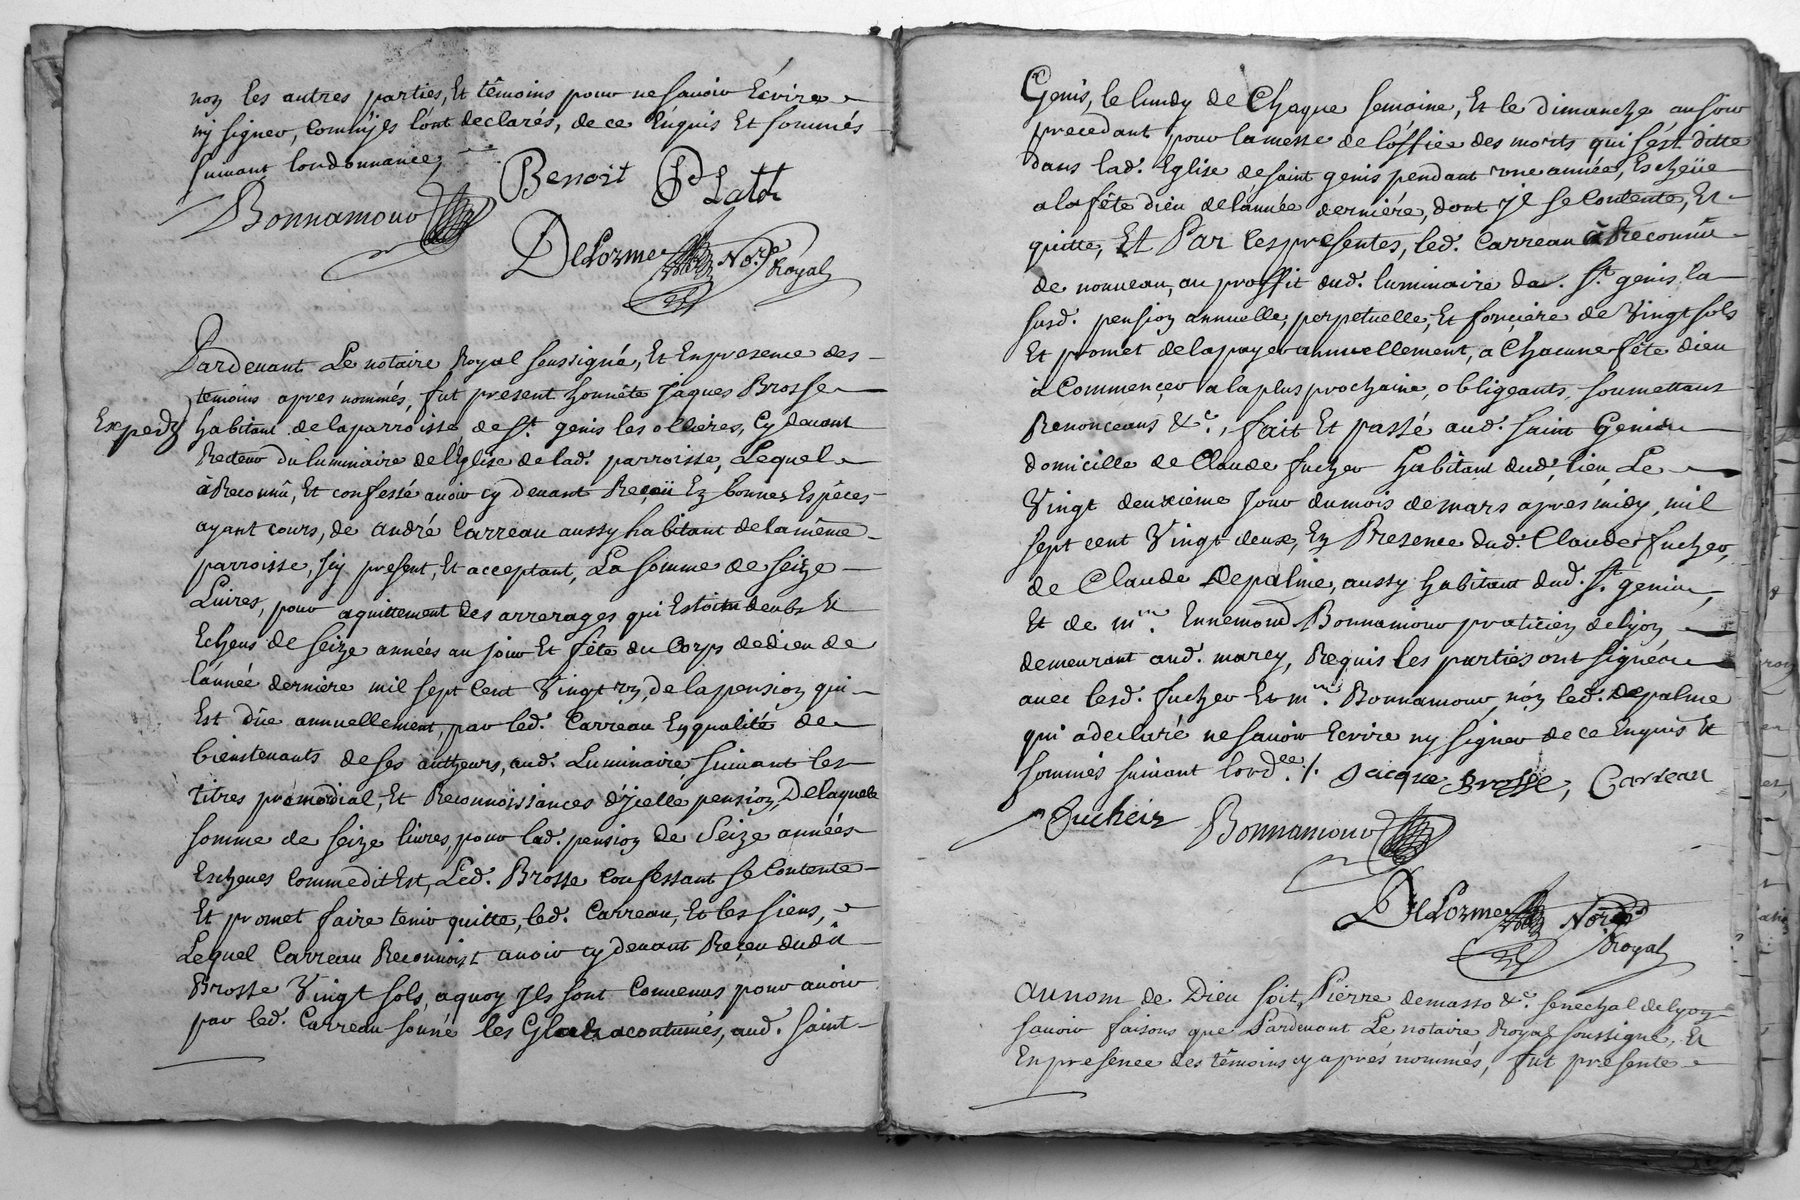 non les autres parties, Et têmoins pour ne savoir Écrire
ny signer, comm'jls l'ont declarés, de ce Enquis Et sommés
suivant lordonnance,
Benoit
Bonnamour
DeLorme Nore. Royal
Pardevant Le notaire Royal soussigné, Et En presence des
temoins apres nommés, fut present honnête Jaques Brosse
Expedy
habitant de la parroisse de St. genis les ollieres, Cy devant
Recteur du luminaire de l'Eglise de lad. parroisse, Lequel
à Reconnû, Et confessé avoir cy devant Reçeü En bonnes Espèces
ayant cours, de andré Carreau aussy habitant de la même
parroisse, jcy present, Et acceptant, La somme de seize
Livres, pour aquittement des arrerages qui Estoint deubs Et
Echeus de seize années au jour Et fête du Corps de dieu de
l'année derniere mil sept cent vingt un, de la pension qui
Est dûe annuellement, par led. Carreau En qualité de
bienstenants de ses autheurs, aud. Luminaire, suivant les
titres promordial, Et Reconnoissances d'jcelle pension, De laquele
somme de seize livres, pour lad. pension de Seize années
Escheues comme dit Est, Led. Brosse Confessant se Contente
Et promet faire tenir quitte, led. Carreau, Et les siens,
Lequel Carreau Reconnoist avoir cy devant Reçeu dudit
Brosse Vingt sols, a quoy Jls sont Convenus pour avoir
par led. Carreau sonné les Glads acoutumés, aud. saint
Genis, le lundy de Chaque semaine, Et le dimanche au soir
precedant pour la messe de l'office des morts qui s'est ditte
dans lad. Eglise de saint genis pendant une année, Escheüe
a la fête dieu de l'année derniére, dont Jl se Contente, Et
quitte, Et Par les presentes, led. Carreau à Reconnû
de nouveau, au proffit dud. luminaire dud. St. genis la
susd. pension annuelle, perpetuelle, Et fonciére de Vingt sols
Et promet de la payer annuellement, a Chacune fête dieu
à Commençer a la plus prochaine, obligeants, soumettans
Renonceans &c., fait Et passé aud. saint Genis
domicille de Claude fucher habitant dud. lieu, Le
Vingt deuxiéme Jour du mois de mars apres midy, mil
sept cent Vingt deux, En Presence dud. Claude fucher,
de Claude depalme, aussy habitant dud. St. genis,
Et de mre. Ennemond Bonnamour praticien de lyon
demeurant aud. marcy, Requis les parties ont signé
avec lesd. fucher Et mre. Bonnamour, nón led. depalme
qui a declaré ne savoir Ecrire ny signer de ce Enquis Et
sommés suivant lordce. /. Jacque Brosse, Carreau
Bonnamour
DeLorme Nore. Royal
au nom de Dieu soit, Pierre demasso &c. senechal de lyon
savoir faisons que Pardevant Le notaire Royal soussigné, Et
En presence des têmoins cy aprés nommés, fut presente